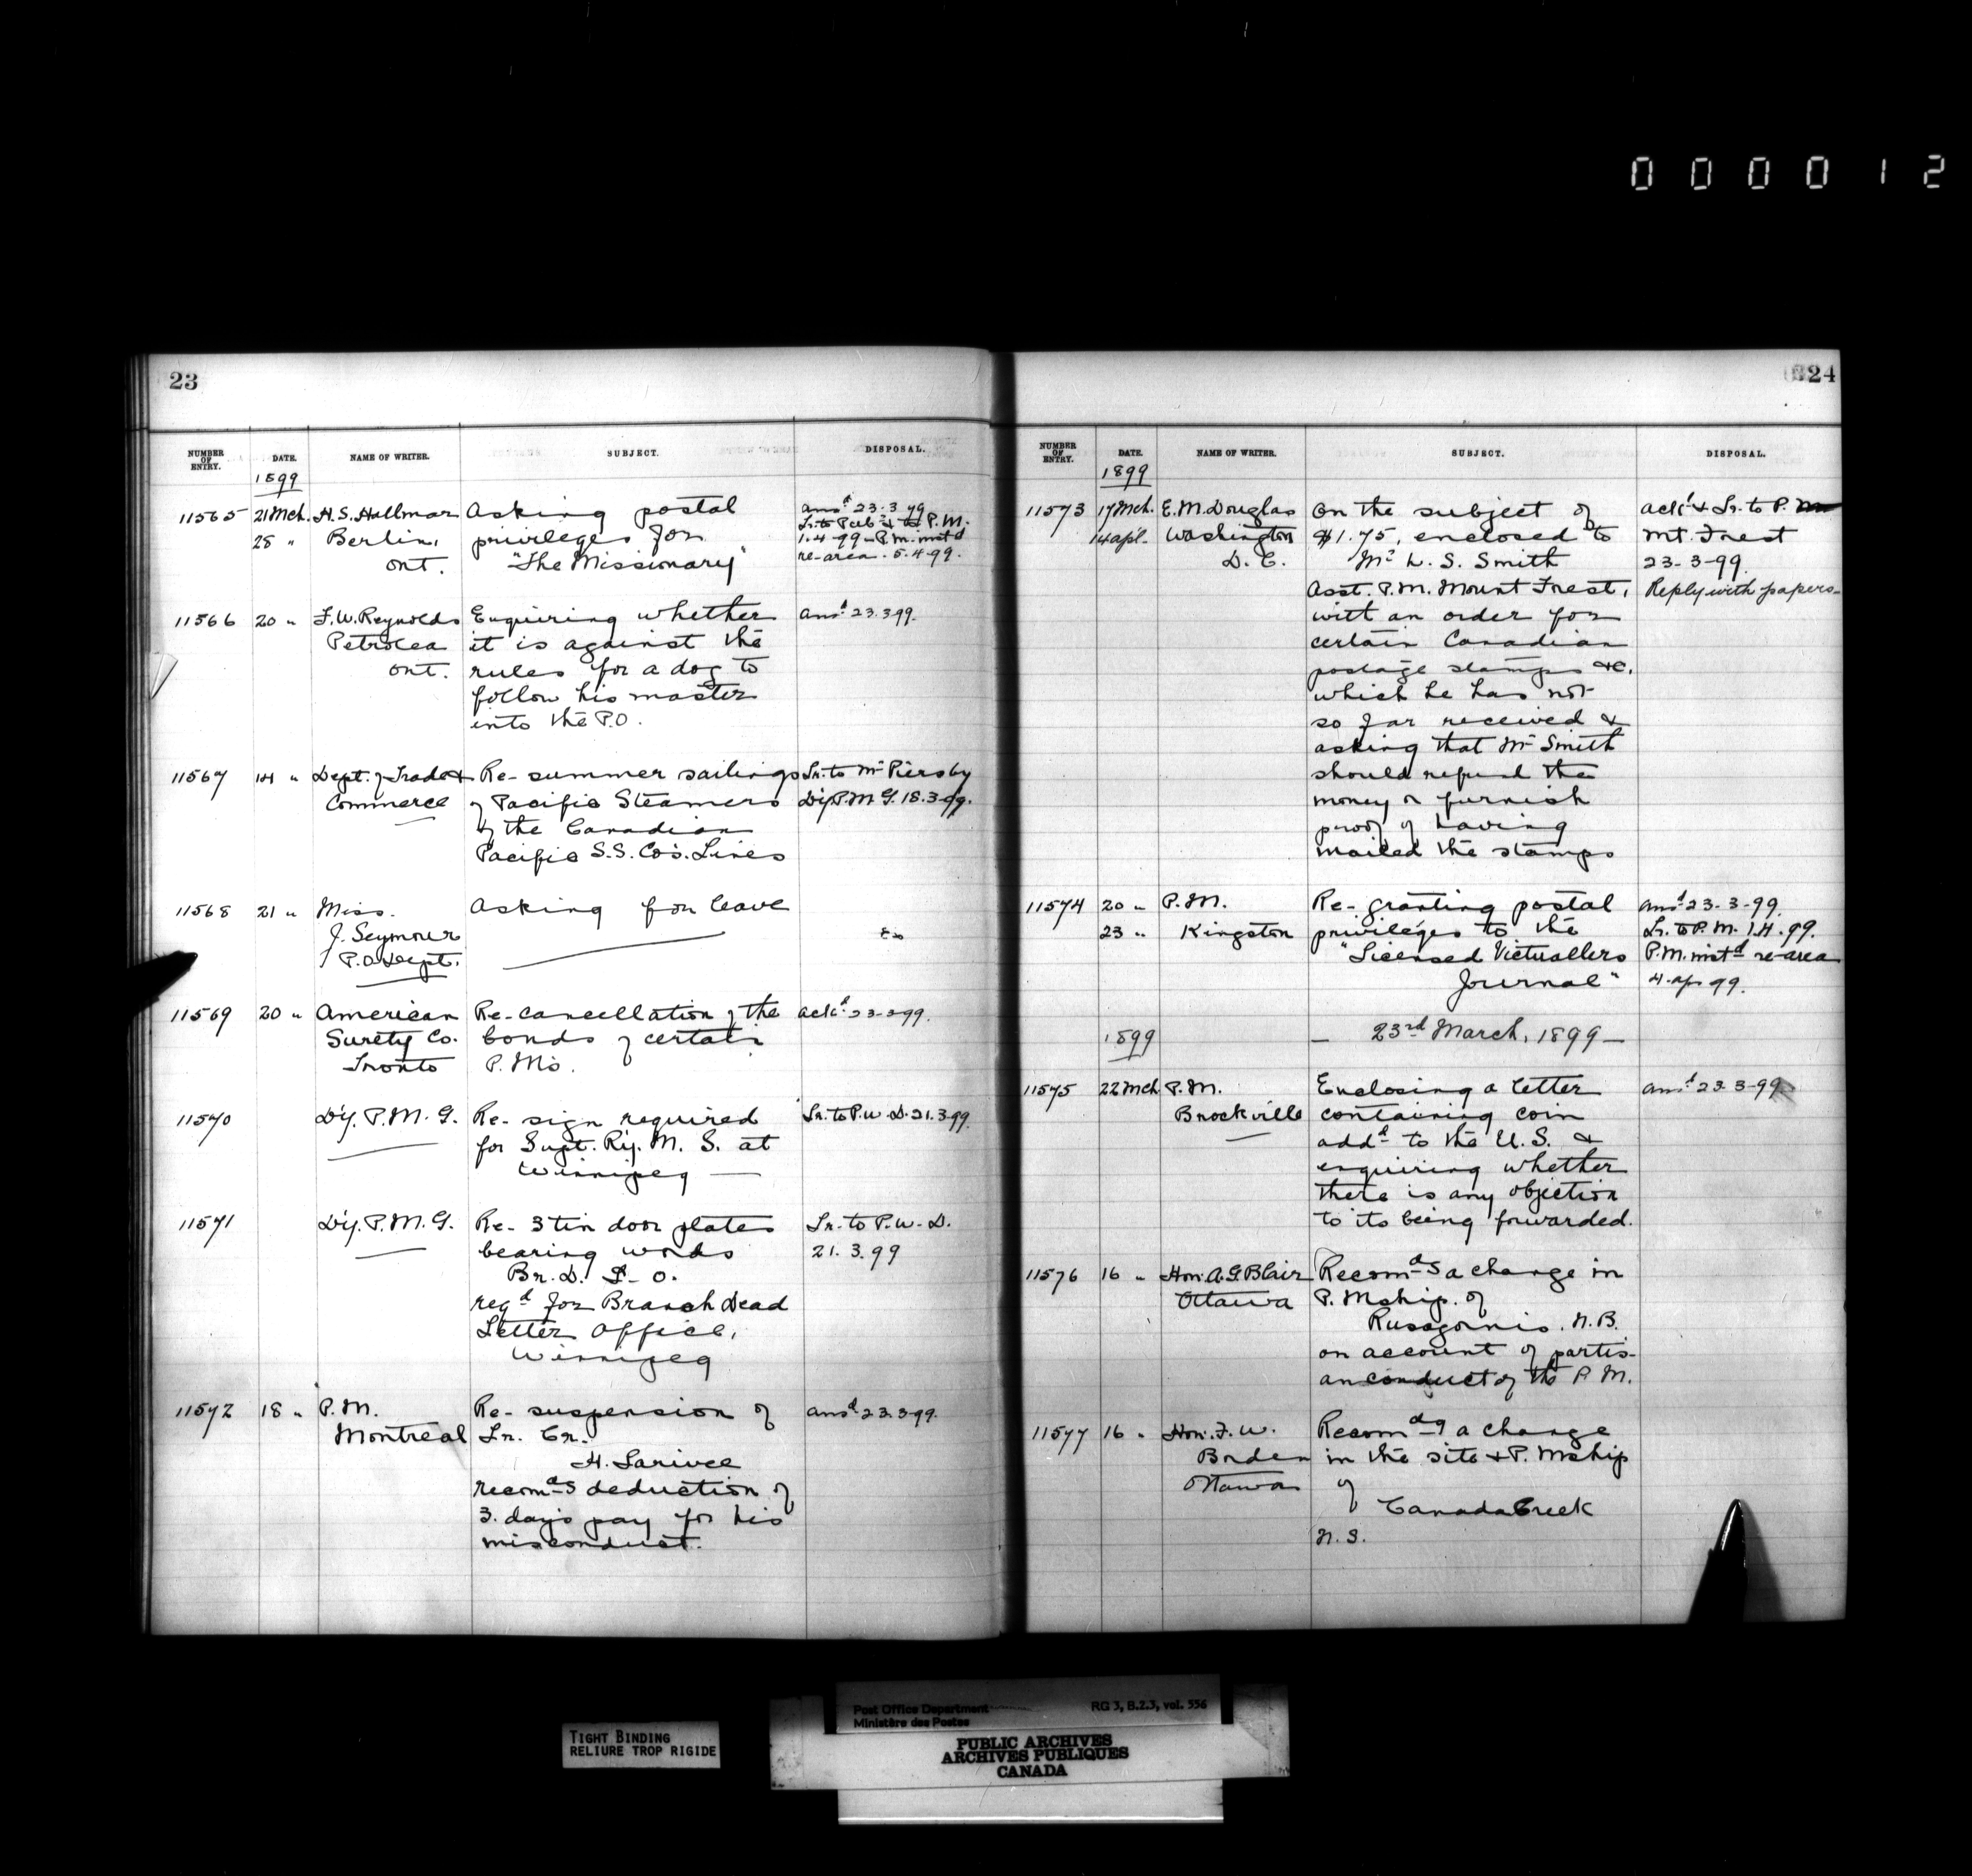 000012
23
NUMBER OF ENTRY. DATE. NAME OF WRITER. SUBJECT. DISPOSAL.
1899
11565 21 Mch. H. S. Hallman Asking postal ansd 23.3.99
28 " Berlin, privileges for Lr. to Pub. & to P.M.
Ont. "The Missionary" 1.4.99 P.M. instd
re-area. 5.4.99.
11566 20 " F. W. Reynolds Enquiring whether ansd 23.3.99.
Petrolea it is against the
Ont. rules for a dog to
follow his master
into the P.O.
11567 14 " Dept. of Trade & Re- summer sailings Lr. to Mr Piers by
Commerce of Pacific Steamers D'y P.M.G. 18.3.99.
of the Canadian
Pacific S.S. Co's. Lines
11568 21 " Miss. Asking for leave
J. Seymour
P.O. Dept.
11569 20 " American Re-cancellation of the ackd 23-3-99.
Surety Co. bonds of certain
Toronto P.M's.
11570 D'y. P.M.G. Re- sign required Lr. to P.W.D. 21.3.99.
for Supt. Ry. M. S. at
Winnipeg
11571 D'y. P.M.G. Re- 3 tin door plates Lr. to P.W.D.
bearing words 21.3.99
Br. D. L. O.
reqd for Branch Dead
Letter Office,
Winnipeg
11572 18 " P.M. Re- suspension of ansd 23.3.99.
Montreal Lr. Cr.
H. Larivee
recomds deduction of
3. days pay for his
misconduct.
24
NUMBER OF ENTRY. DATE. NAME OF WRITER. SUBJECT. DISPOSAL.
1899
11573 17 Mch. E. M. Douglas On the subject of ackd & Lr. to P.M.
14 apl. Washington $1.75, enclosed to Mt. Forest
D.C. Mr L. S. Smith 23-3-99.
Asst. P.M. Mount Forest, Reply with papers
with an order for
certain Canadian
postage stamps &c.
which he has not
so far received &
asking that Mr Smith
should refund the
money or furnish
proof of having
mailed the stamps
11574 20 " P.M. Re- granting postal ansd 23-3-99.
23 " Kingston privileges to the Lr. to P.M. 1.4.99.
"Licensed Victuallers P.M. instd re-area
Journal" 4 ap 99.
1899 — 23rd March, 1899 —
11575 22 Mch P.M. Enclosing a letter ansd 23-3-99
Brockville containing coin
addd to the U.S. &
enquiring whether
there is any objection
to its being forwarded.
11576 16 " Hon. A. G. Blair Recomds a change in
Ottawa P. Mship. of
Rusagornis. N.B.
on account of partis-
an conduct of the P.M.
11577 16 " Hon. F. W. Recomdg a change
Borden in the site & P. Mship
Ottawa of
Canada Creek
N.S.
TIGHT BINDING
RELIURE TROP RIGIDE
Post Office Department RG 3, B.2.3, vol. 556
Ministère des Postes
PUBLIC ARCHIVES
ARCHIVES PUBLIQUES
CANADA